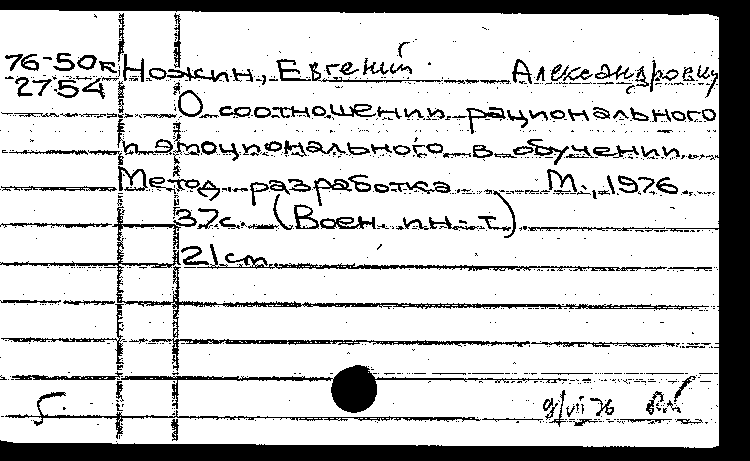 76-50к Ножин, Евгений Александрович
2754
О соотношении рационального
и эмоционального в обучении.
Метод. разработка. М., 1976.
37с. (Воен. ин-т)
21 cm
9/VII 76